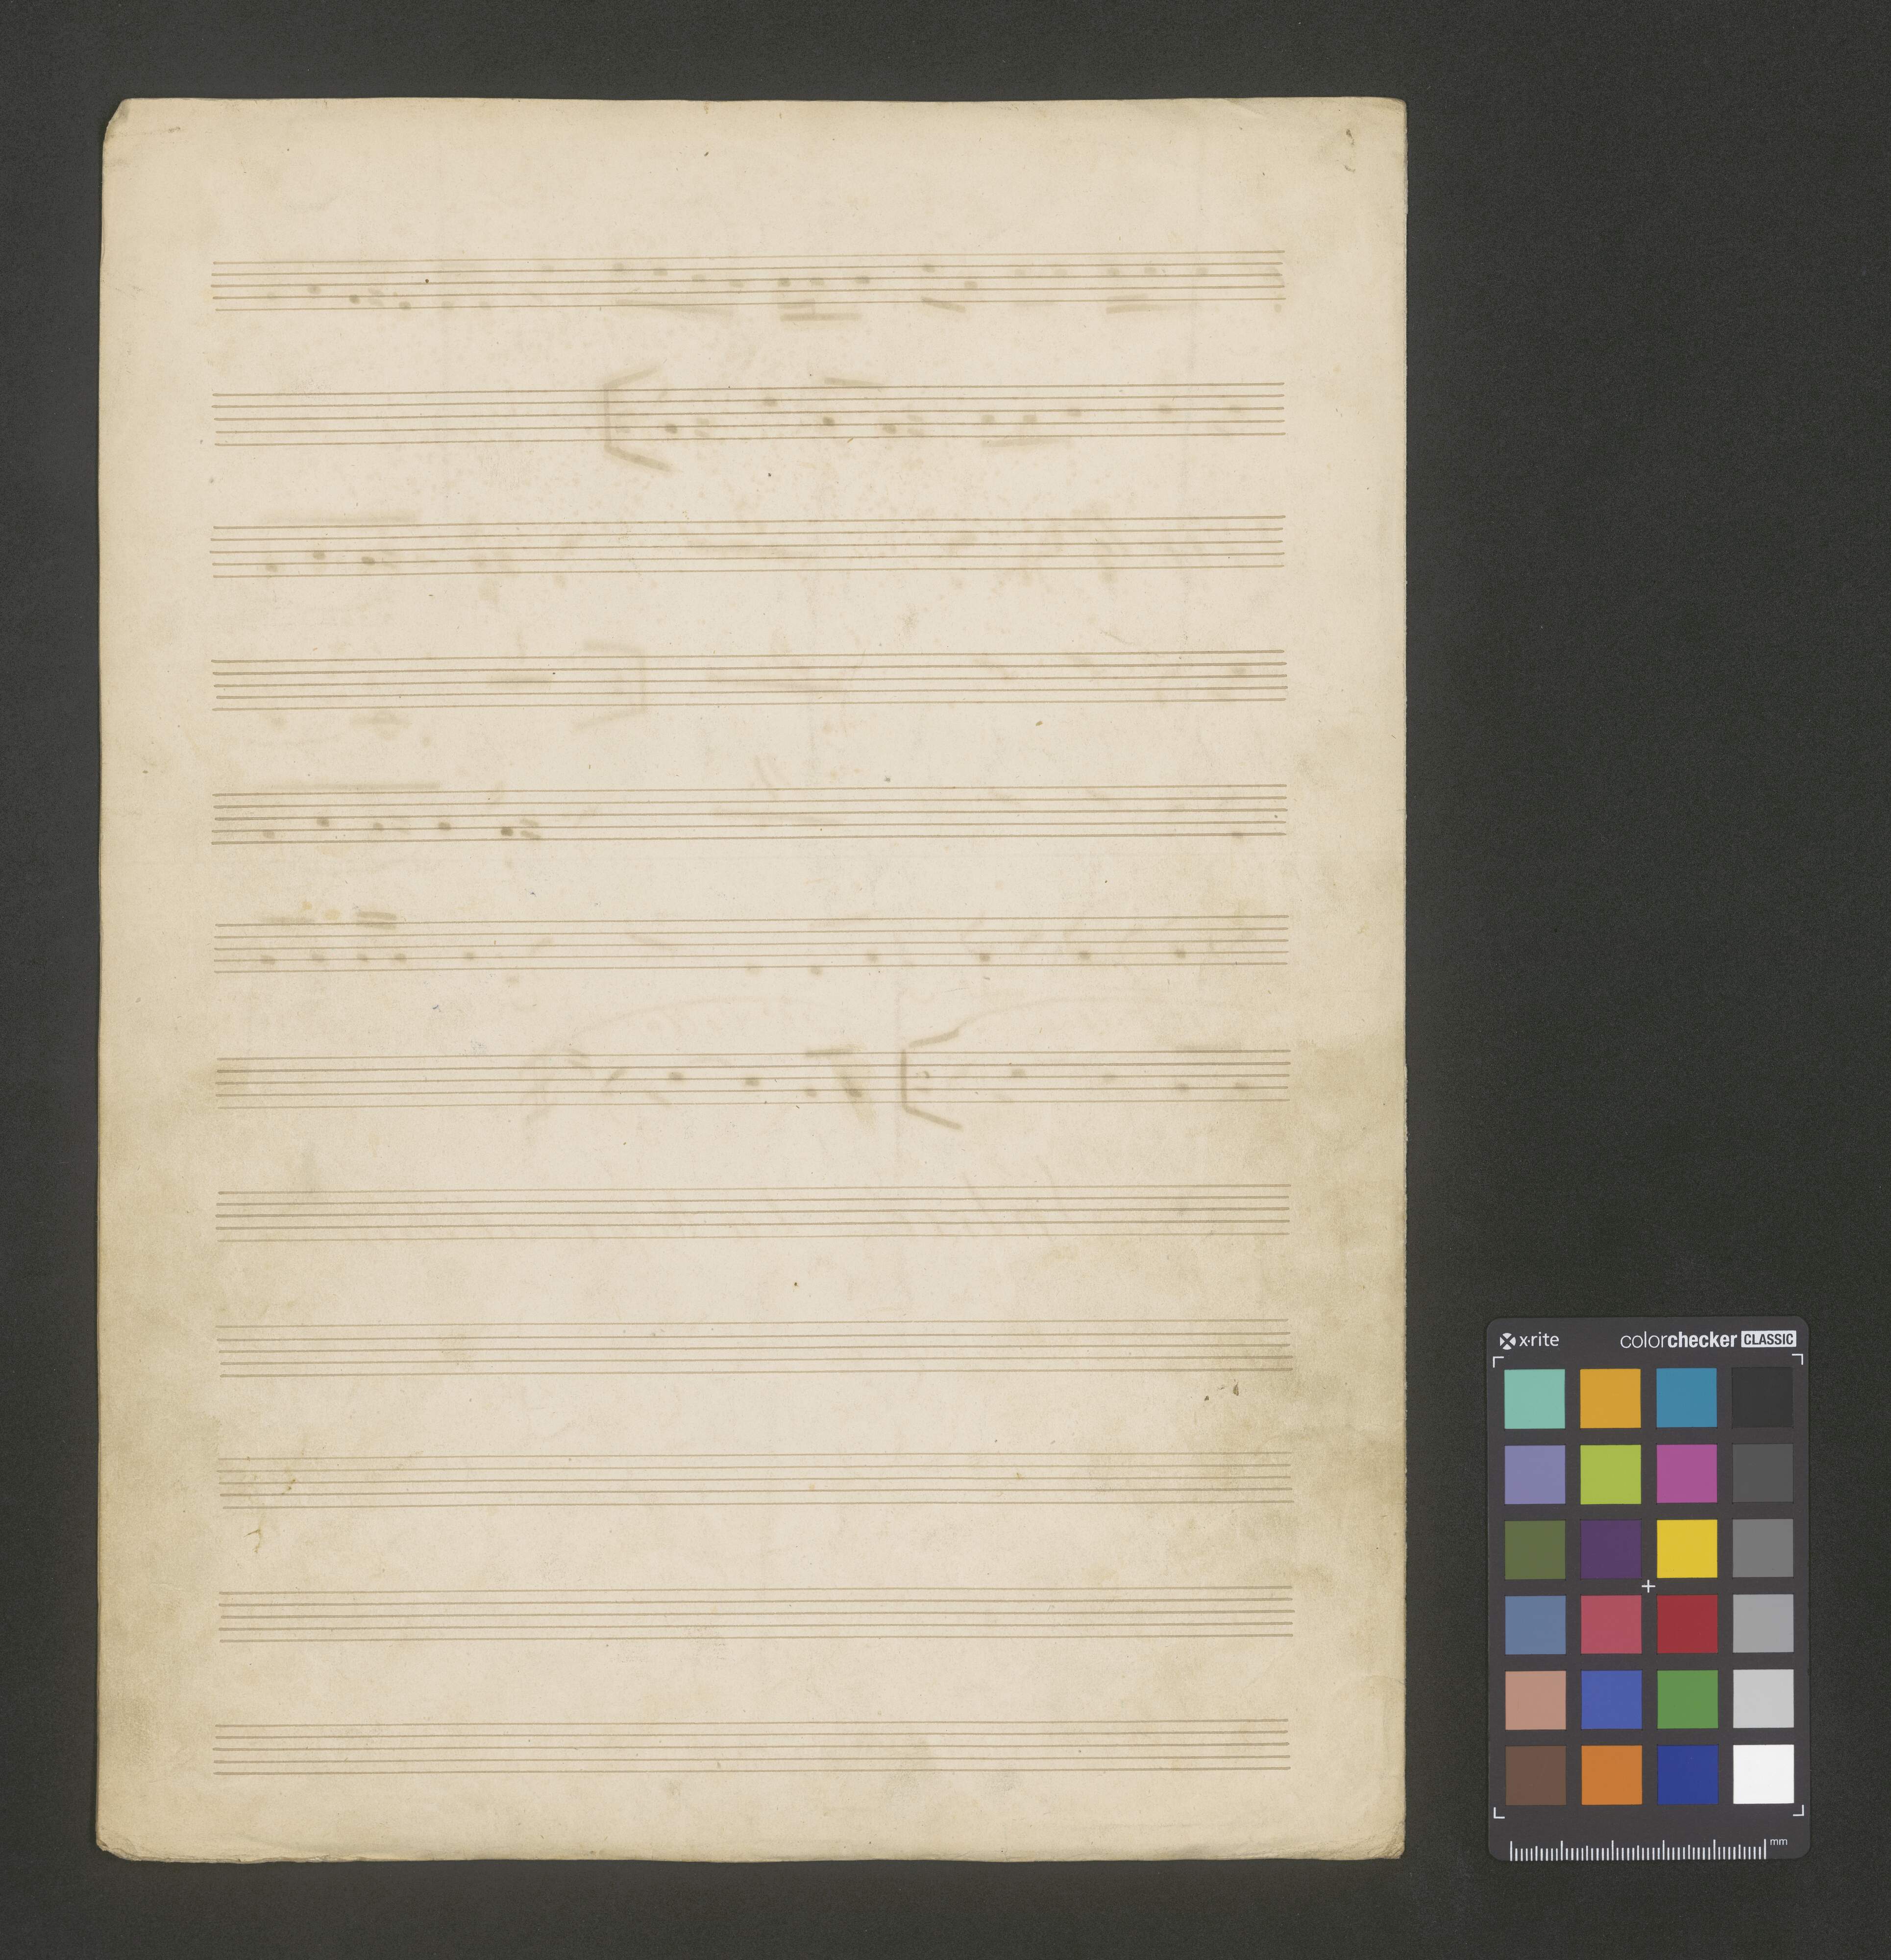 x·rite colorchecker CLASSIC
mm